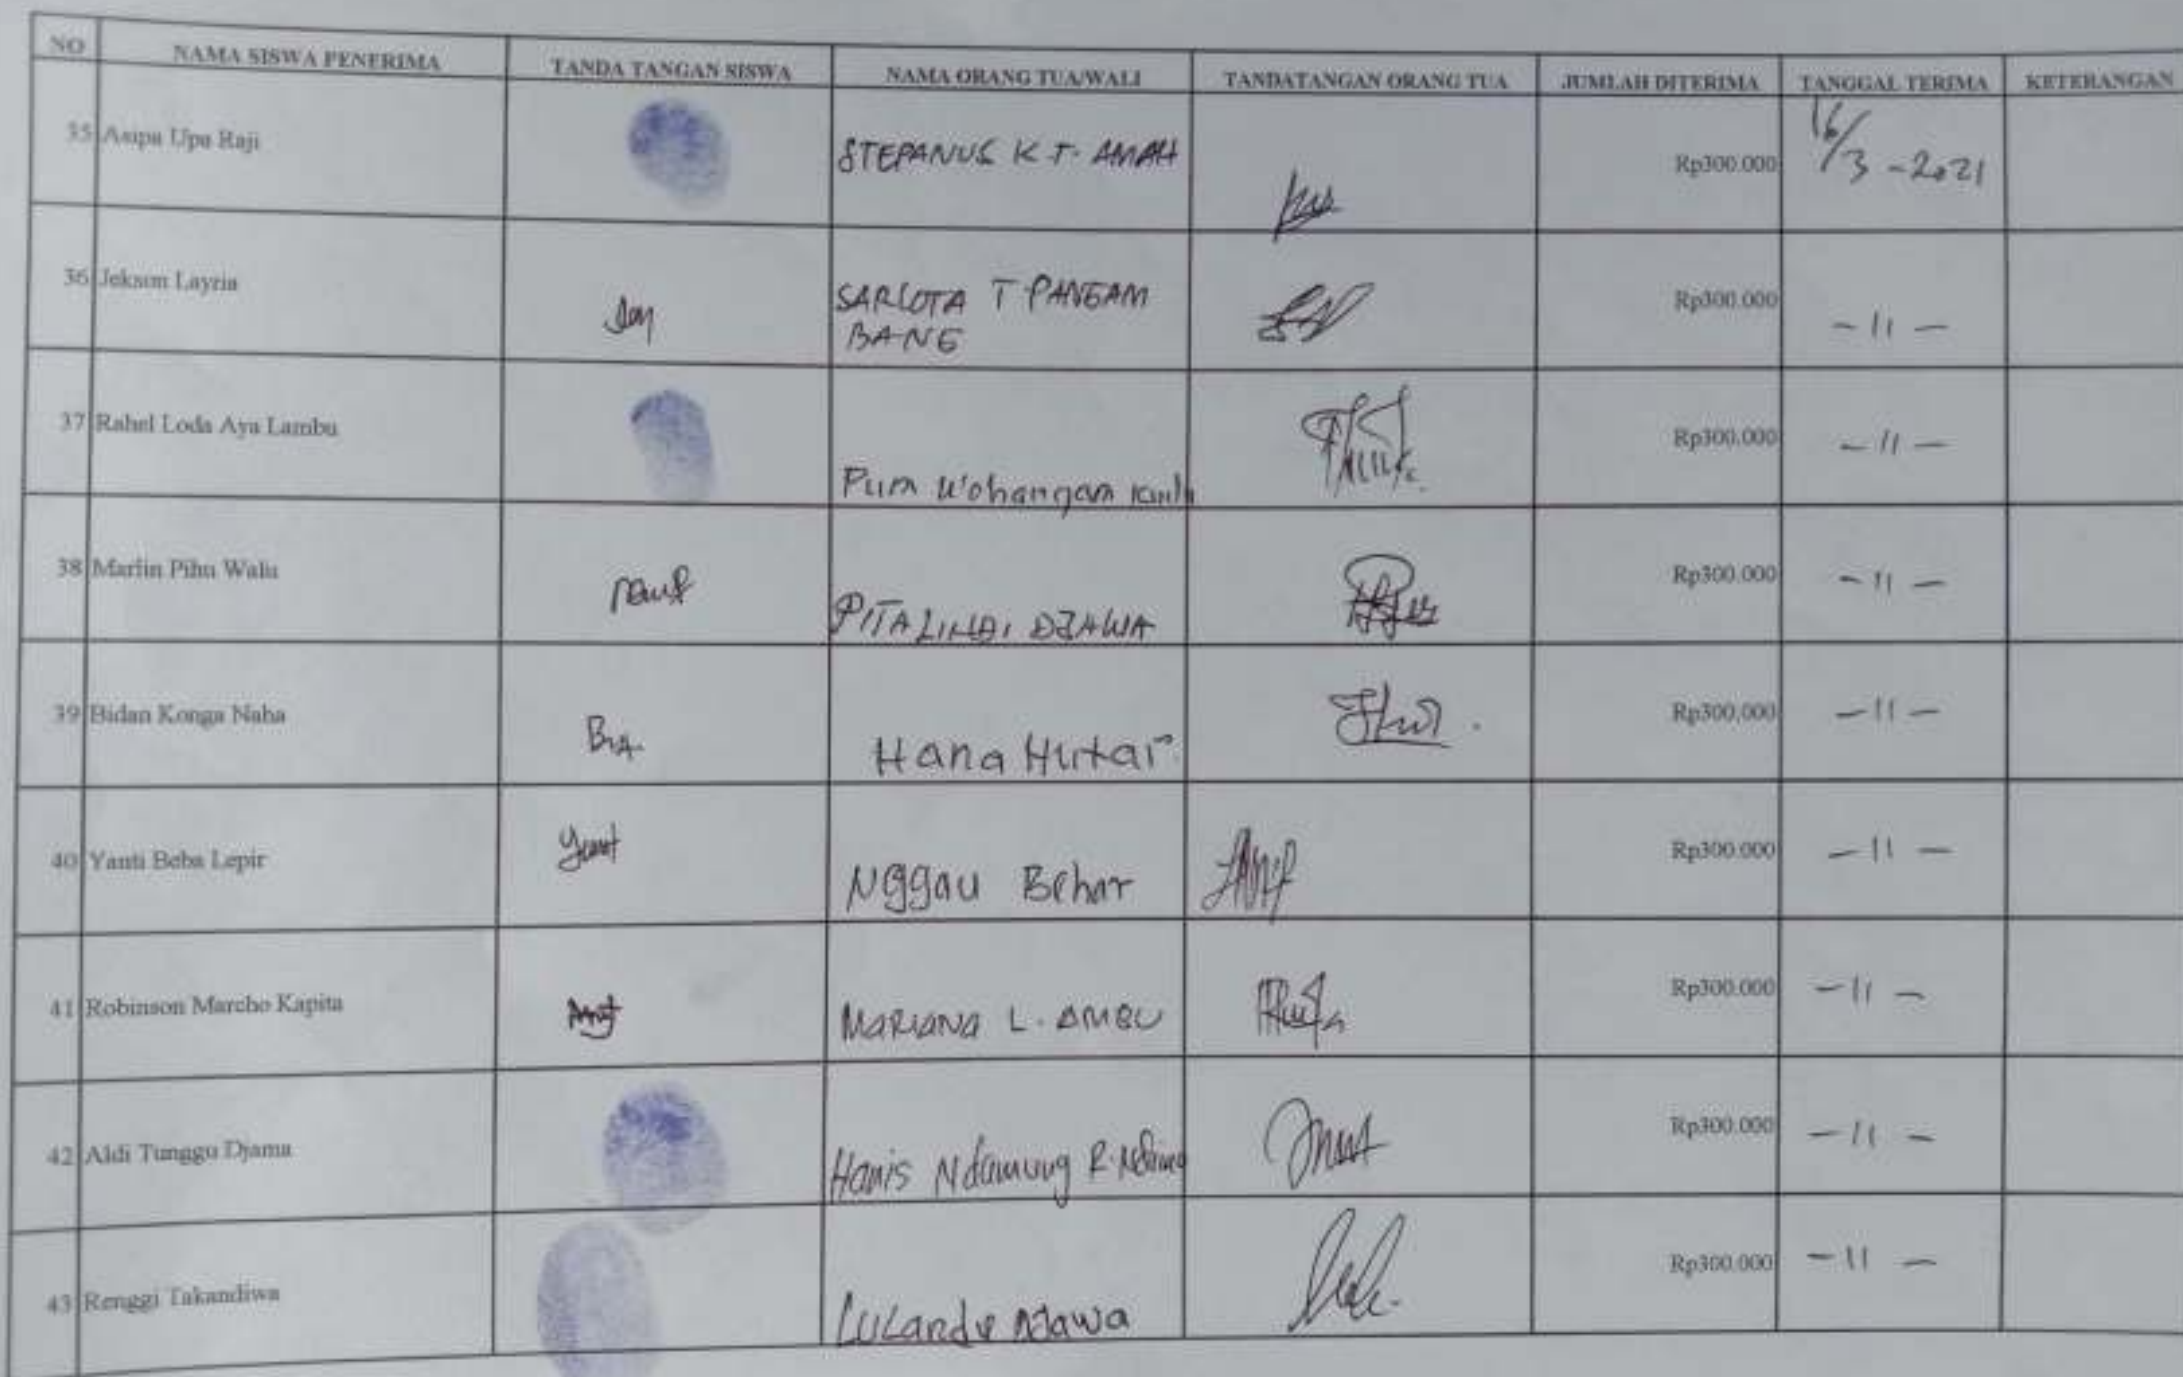 NO NAMA SISWA PENERIMA TANDA TANGAN SISWA NAMA ORANG TUA/WALI TANDATANGAN ORANG TUA JUMLAH DITERIMA TANGGAL TERIMA KETERANGAN
35 Asipa Upa Raji STEPANUS K T. AMAH Rp300.000 16/3 -2021
36 Jekson Layria SARLOTA T PANGAM Rp300.000 - 11 -
BANG
37 Rahel Loda Aya Lambu Rp300.000 - 11 -
38 Marlin Pihu Walu PITA LINDI DJAWA Rp300.000 - 11 -
39 Bidan Konga Naha Bia. Hana Hutar Rp300.000 - 11 -
40 Yanti Beba Lepir Yant Nggau Behar Rp300.000 - 11 -
41 Robinson Marcho Kapita MARIANA L. AMBU Rp300.000 - 11 -
42 Aldi Tunggu Djama Hanis Ndamung R. Rp300.000 - 11 -
43 Renggi Takandiwa Rp300.000 - 11 -